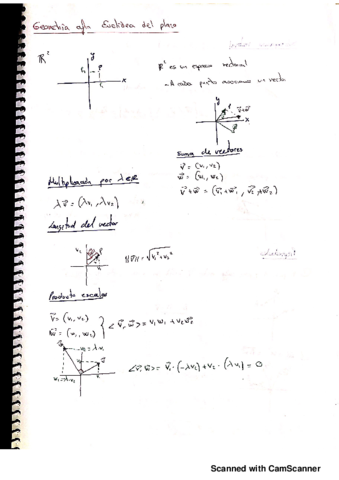 Geometría afín Euclídea del plano
ℝ²
y
x
ℝ² es un espacio vectorial
A cada punto asociamos un vector
y
x
Suma de vectores
v⃗ = (v₁, v₂)
w⃗ = (w₁, w₂)
Multiplicación por λ∈ℝ
λv⃗ = (λv₁, λv₂)
Longitud del vector
v₂
v₁
||v⃗|| = √v₁²+v₂²
Producto escalar
v⃗ = (v₁, v₂)
w⃗ = (w₁, w₂)
<v⃗, w⃗> = v₁w₁ + v₂w₂
<v⃗, w⃗> = v₁·(-λv₂) + v₂·(λv₁) = 0
Scanned with CamScanner